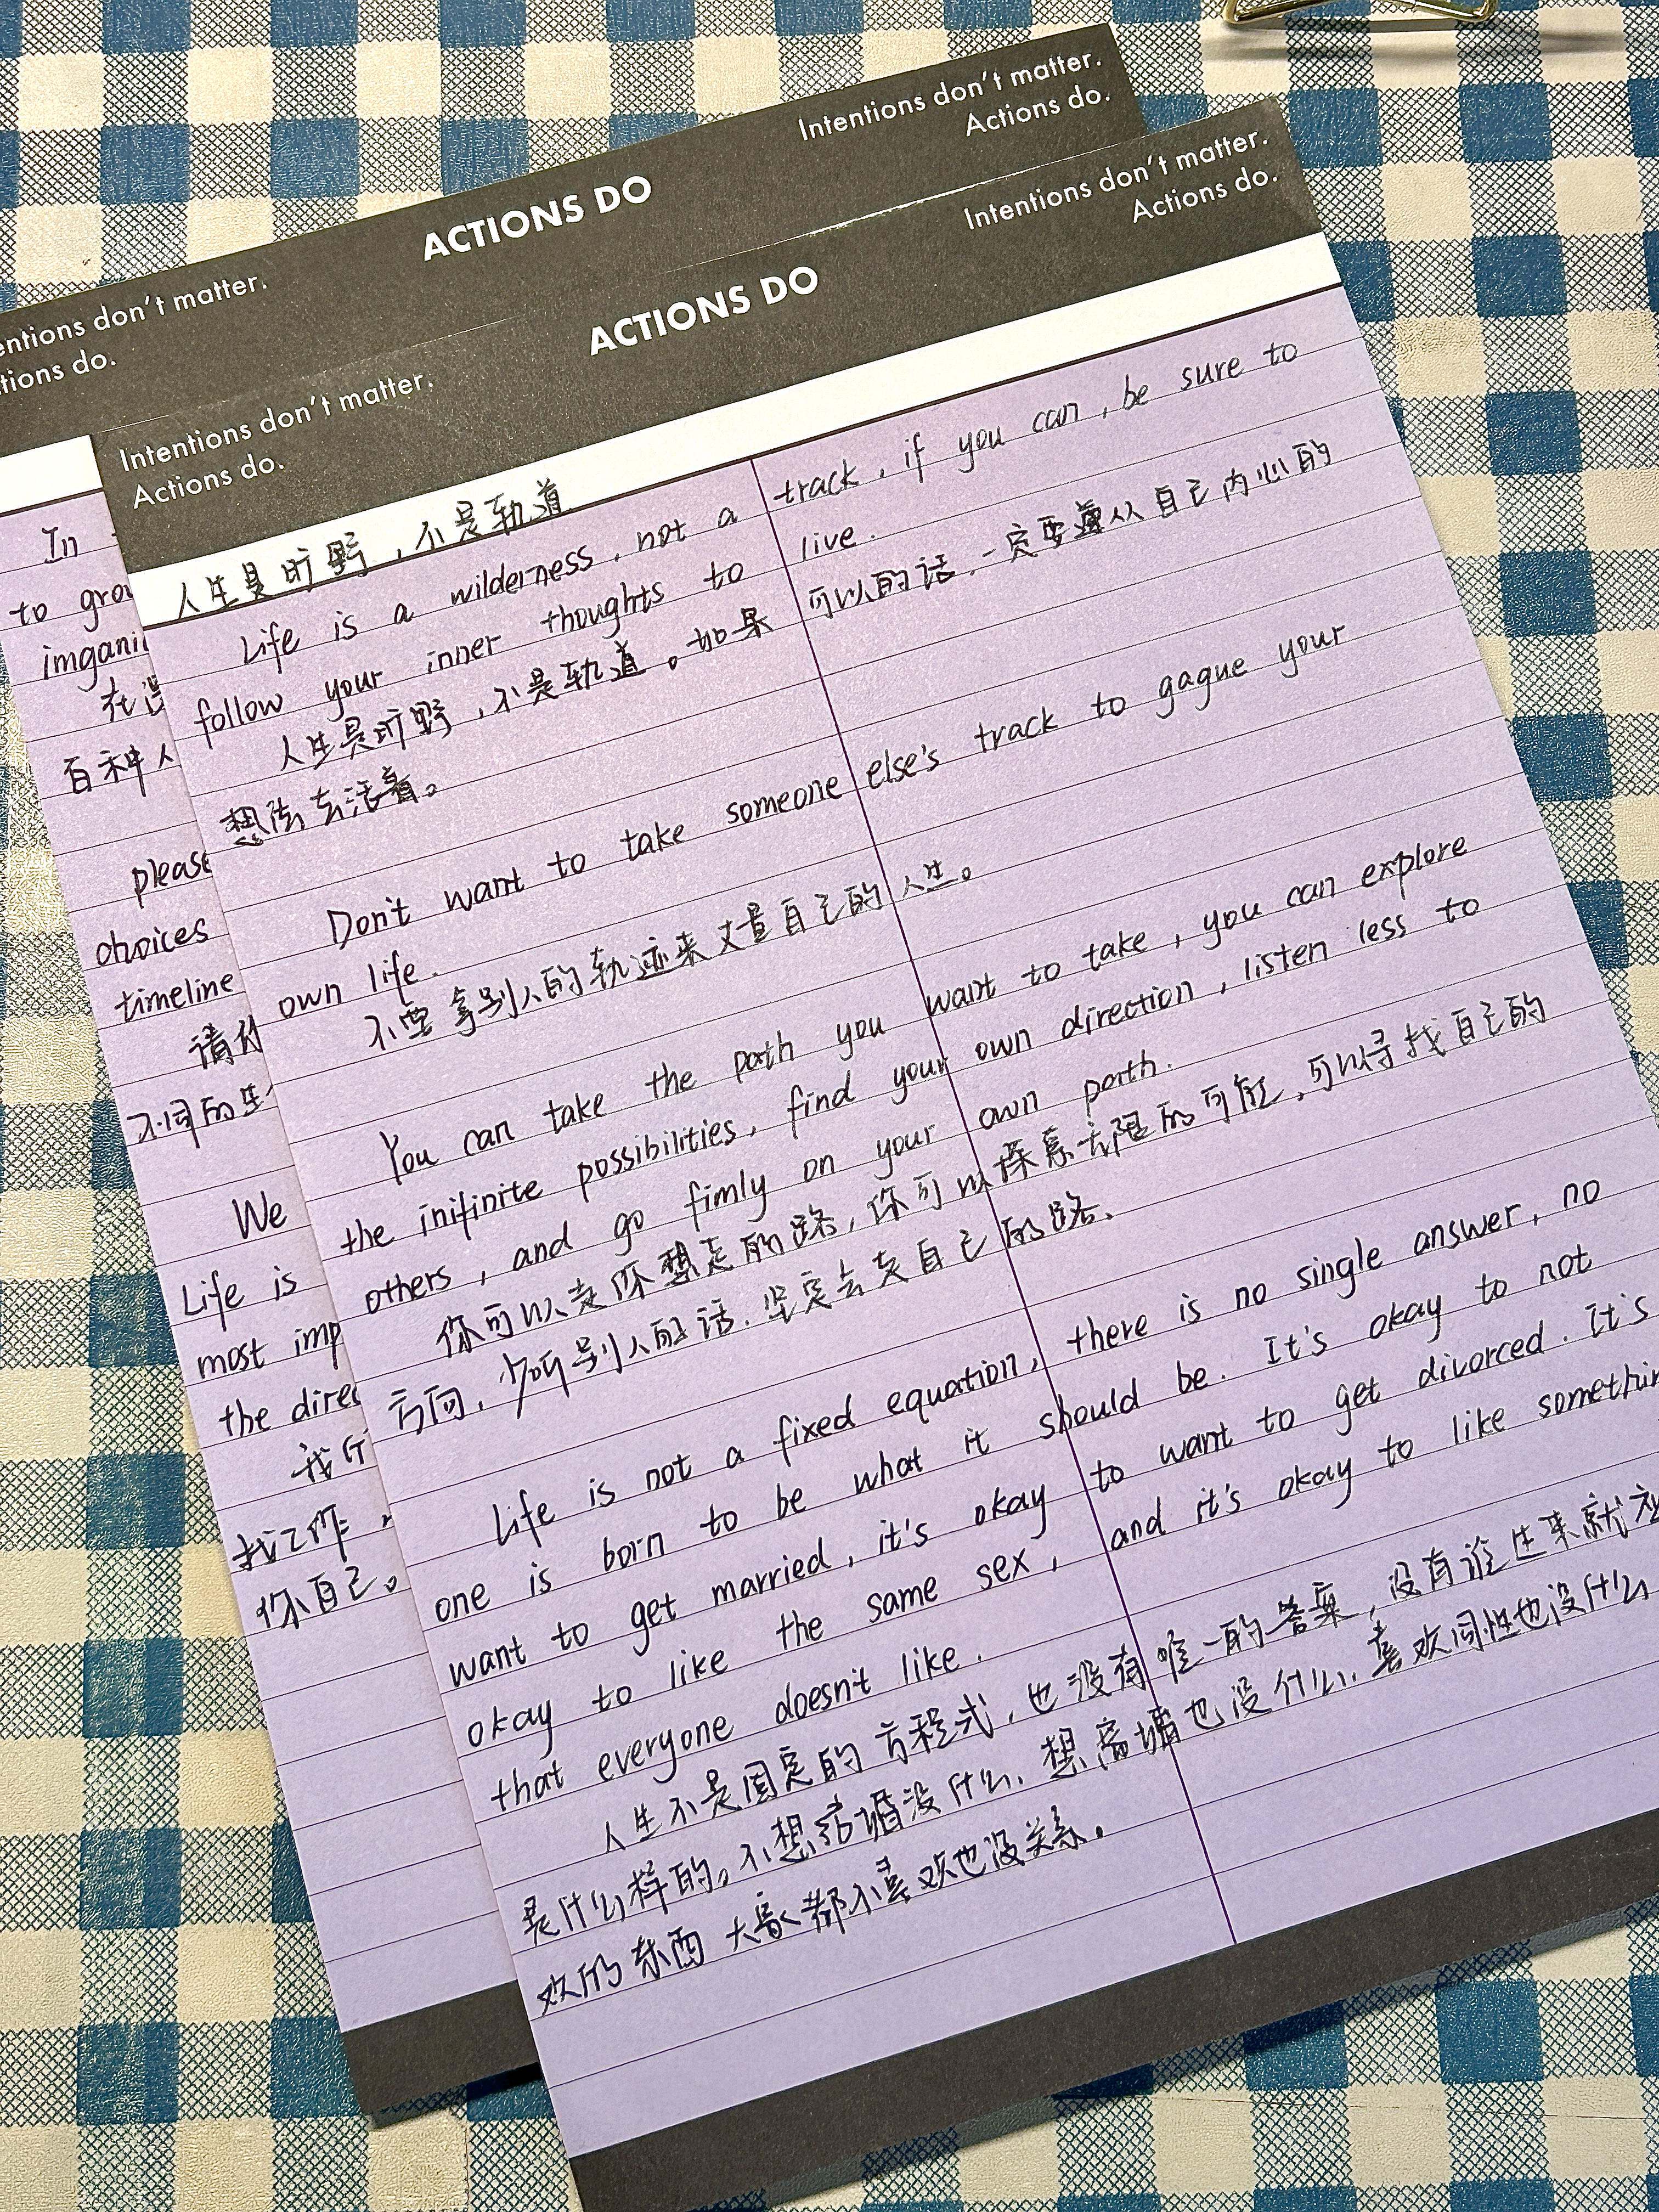 Intentions don't matter.
Actions do.
ACTIONS DO
entions don't matter.
tions do.
In
to grou
imgani
在
百种人
please
choices
timeline
请你
不同的生
We
Life is
most imp
the direc
我们
找工作
你自己。
Intentions don't matter.
Actions do.
ACTIONS DO
Intentions don't matter.
Actions do.
人生是旷野，不是轨道
Life is a wilderness, not a track, if you can, be sure to
follow your inner thoughts to live.
人生是旷野，不是轨道。如果可以的话，一定要遵从自己内心的
想法去活着。
Don't want to take someone else's track to gague your
own life.
不要拿别人的轨迹来丈量自己的人生。
You can take the path you want to take, you can explore
the inifinite possibilities, find your own direction, listen less to
others, and go fimly on your own path.
你可以走你想走的路，你可以探索无限的可能，可以寻找自己的
方向，少听别人的话，坚定去走自己的路。
Life is not a fixed equation, there is no single answer, no
one is born to be what it should be. It's okay to not
want to get married, it's okay to want to get divorced. It's
okay to like the same sex, and it's okay to like somethin
that everyone doesn't like.
人生不是固定的方程式，也没有唯一的答案，没有谁生来就应
是什么样的。不想结婚没什么，想离婚也没什么，喜欢同性也没什么
欢的东西大家都不喜欢也没关系。